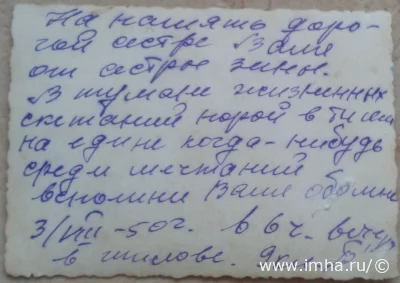 На память доро-
гой сестре Вали
от сестры Зины.
В тумане жизненных
скитаний порой в тиши
на едине когда-нибудь
среди мечтаний
вспомни Валя обо мне
3/VIII-50г. в 6 ч. вечер
в
www.imha.ru/©